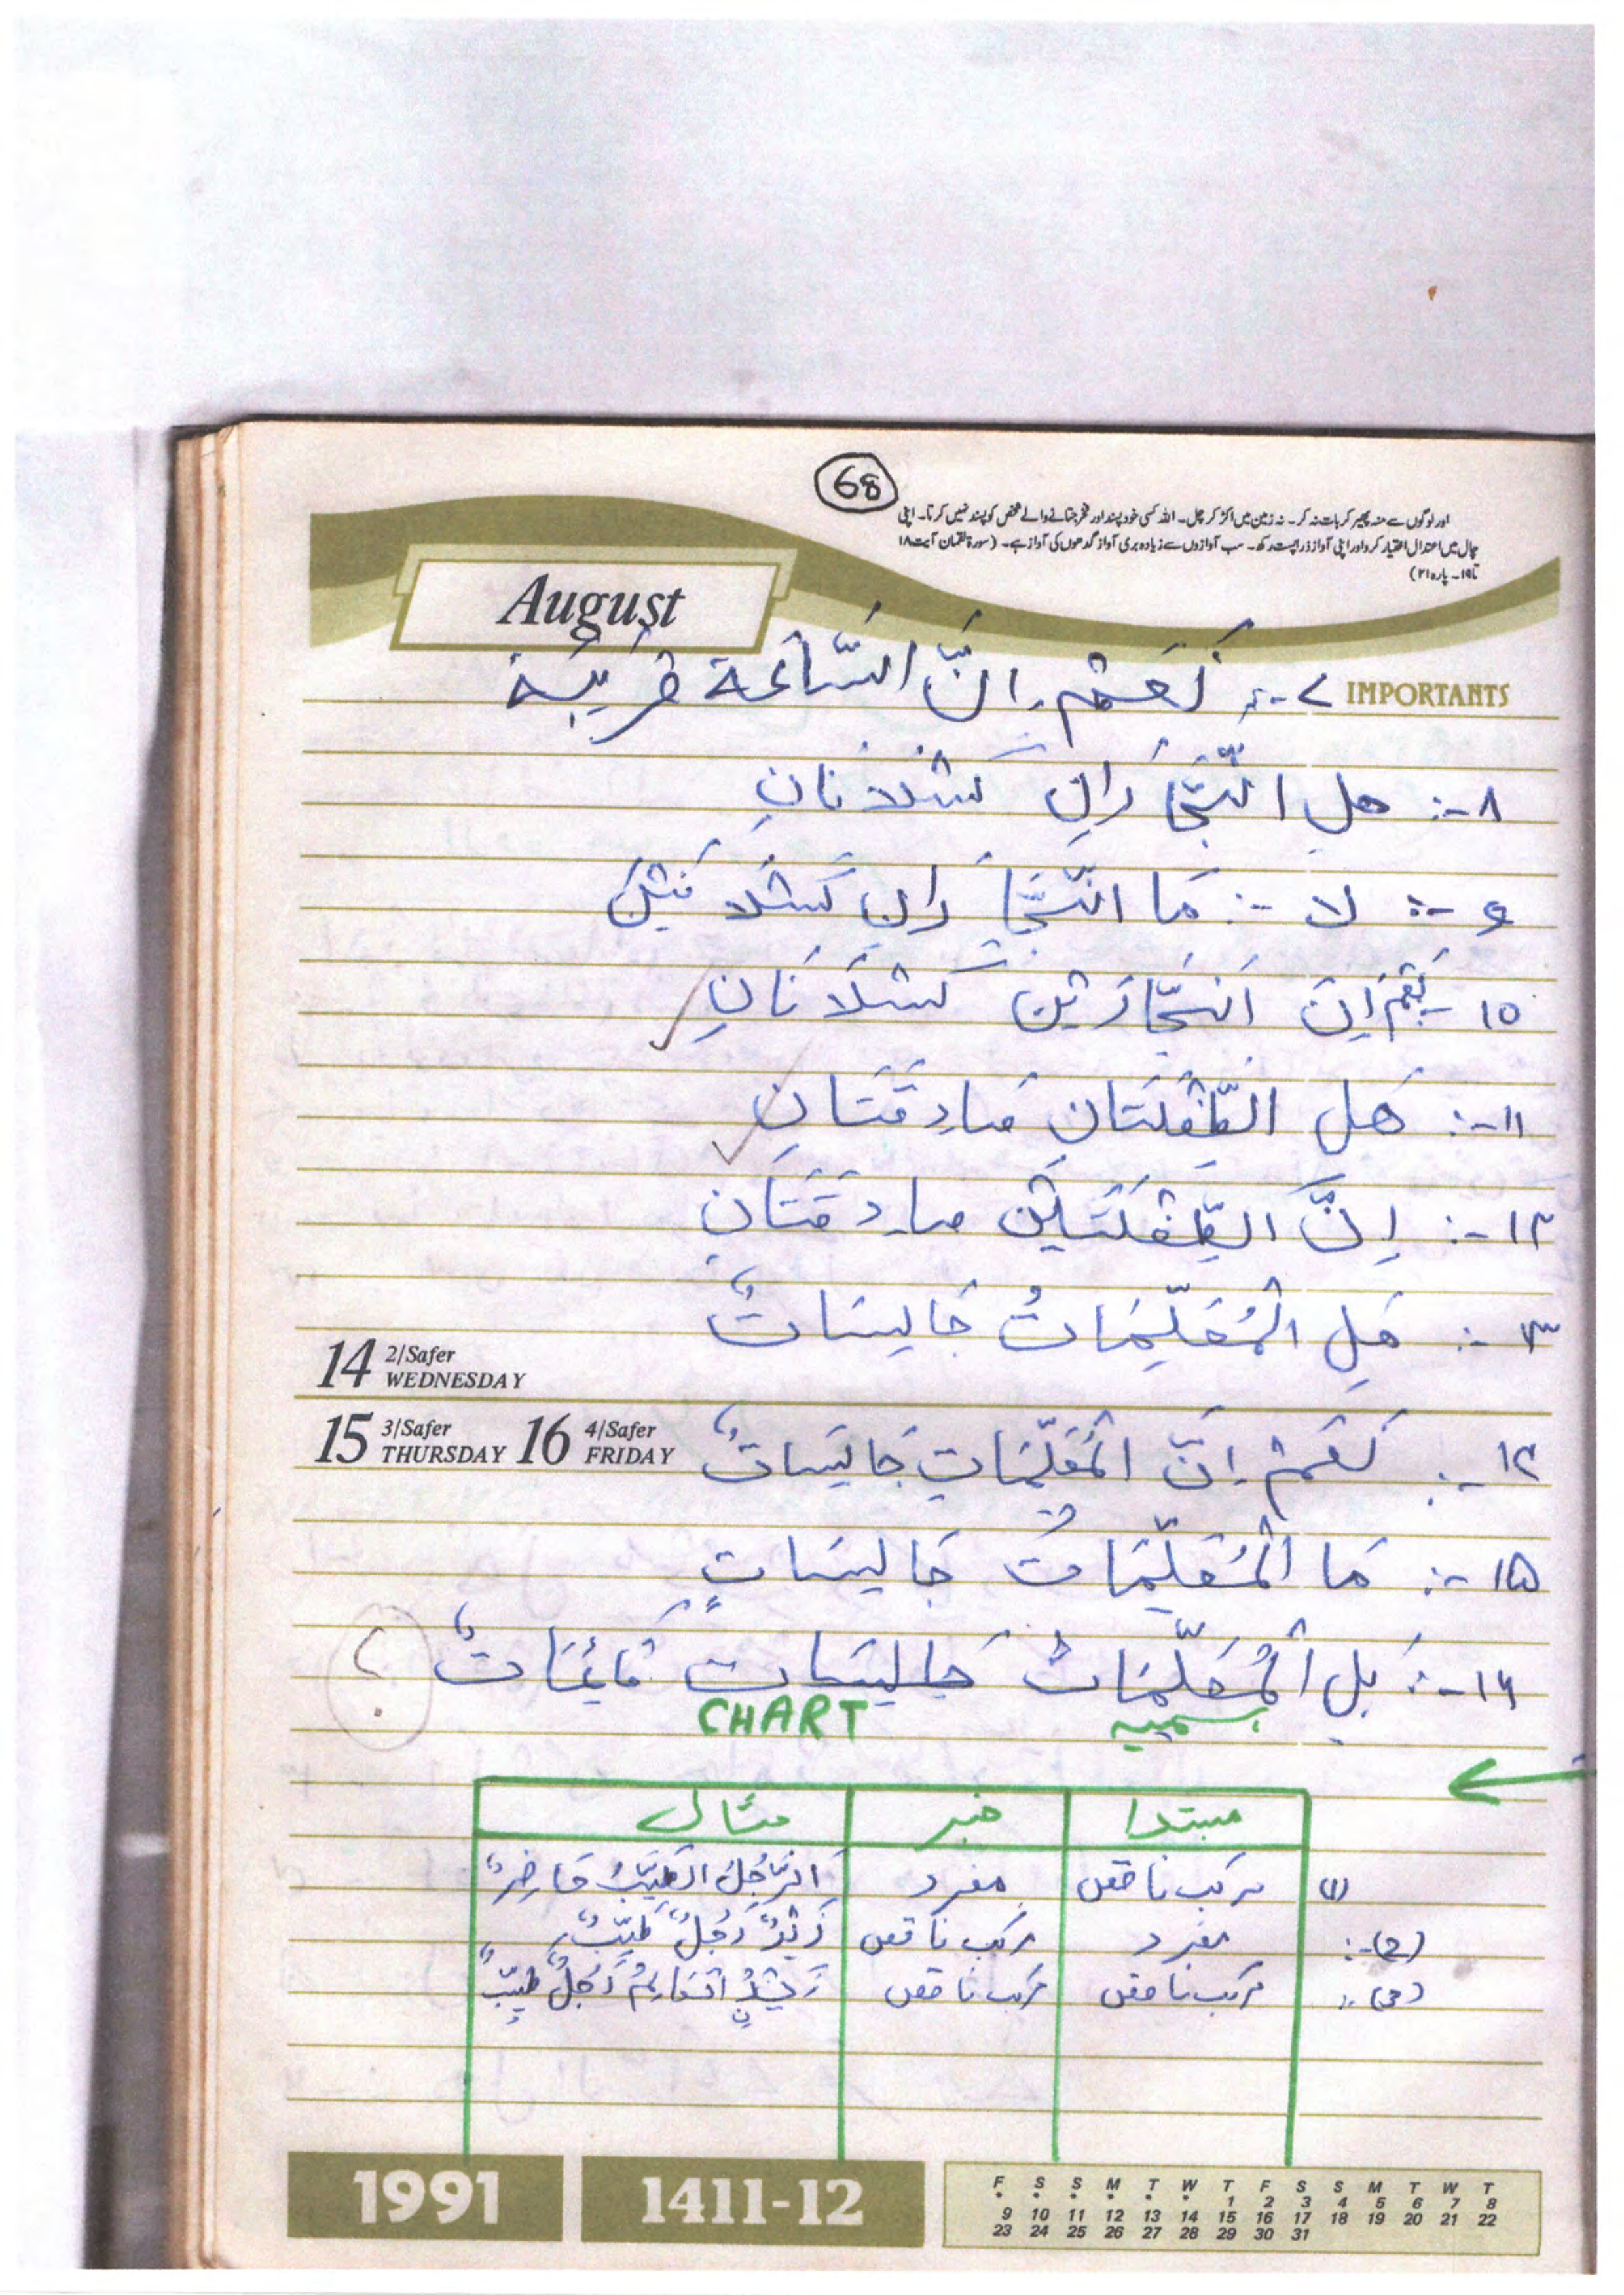 68
اور لوگوں سے منہ پھیر کر بات نہ کر۔ نہ زمین میں اکڑ کر چل۔ اللہ کسی خود پسند اور فخر جتانے والے شخص کو پسند نہیں کرتا۔ اپنی
چال میں اعتدال اختیار کرو اور اپنی آواز ذرا پست رکھ۔ سب آوازوں سے زیادہ بری آواز گدھوں کی آواز ہے۔ (سورۃ لقمان آیت ۱۸
تا ۱۹۔ پارہ ۲۱)
August
IMPORTANTS
۷-: نَعَمْ اِنَّ السَّاعَةَ قَرِيْبَةٌ
۸-: هلِ النَّجَّارَانِ كَسْلَانَانِ
۹-: لا -: مَا النَّجَّارَانِ كَسْلَانَيْنِ
۱۰ نَعَمْ اِنَّ النَّجَّارَيْنِ كَسْلَانَانِ
۱۱-: هَلِ الطِّفْلَتَانِ صَادِقَتَانِ
۱۲-: اِنَّ الطِّفْلَتَيْنِ صَادِقَتَانِ
۱۳-: هَلِ الْمُعَلِّمَاتُ جَالِسَاتٌ
14 2/Safer WEDNESDAY
15 3/Safer THURSDAY 16 4/Safer FRIDAY
۱۴-: نَعَمْ اِنَّ الْمُعَلِّمَاتِ جَالِسَاتٌ
۱۵-: مَا الْمُعَلِّمَاتُ جَالِسَاتٍ
۱۶-: بَلِ الْمُعَلِّمَاتُ جَالِسَات قَائِمَاتٌ ؟
سمیہ CHART
مبتدا خبر مثال
(۱) مرکب ناقص مفرد اَلرَّجُلُ الطَّيِّبُ حَاضِرٌ
(۲)-: مفرد مرکب ناقص زَيْدٌ رَجُلٌ طَيِّبٌ
(۳) مرکب ناقص مرکب ناقص زَيْدُنِ الْعَالِمُ رَجُلٌ طَيِّبٌ
1991 1411-12
F S S M T W T F S S M T W T
* * * * * * 1 2 3 4 5 6 7 8
9 10 11 12 13 14 15 16 17 18 19 20 21 22
23 24 25 26 27 28 29 30 31